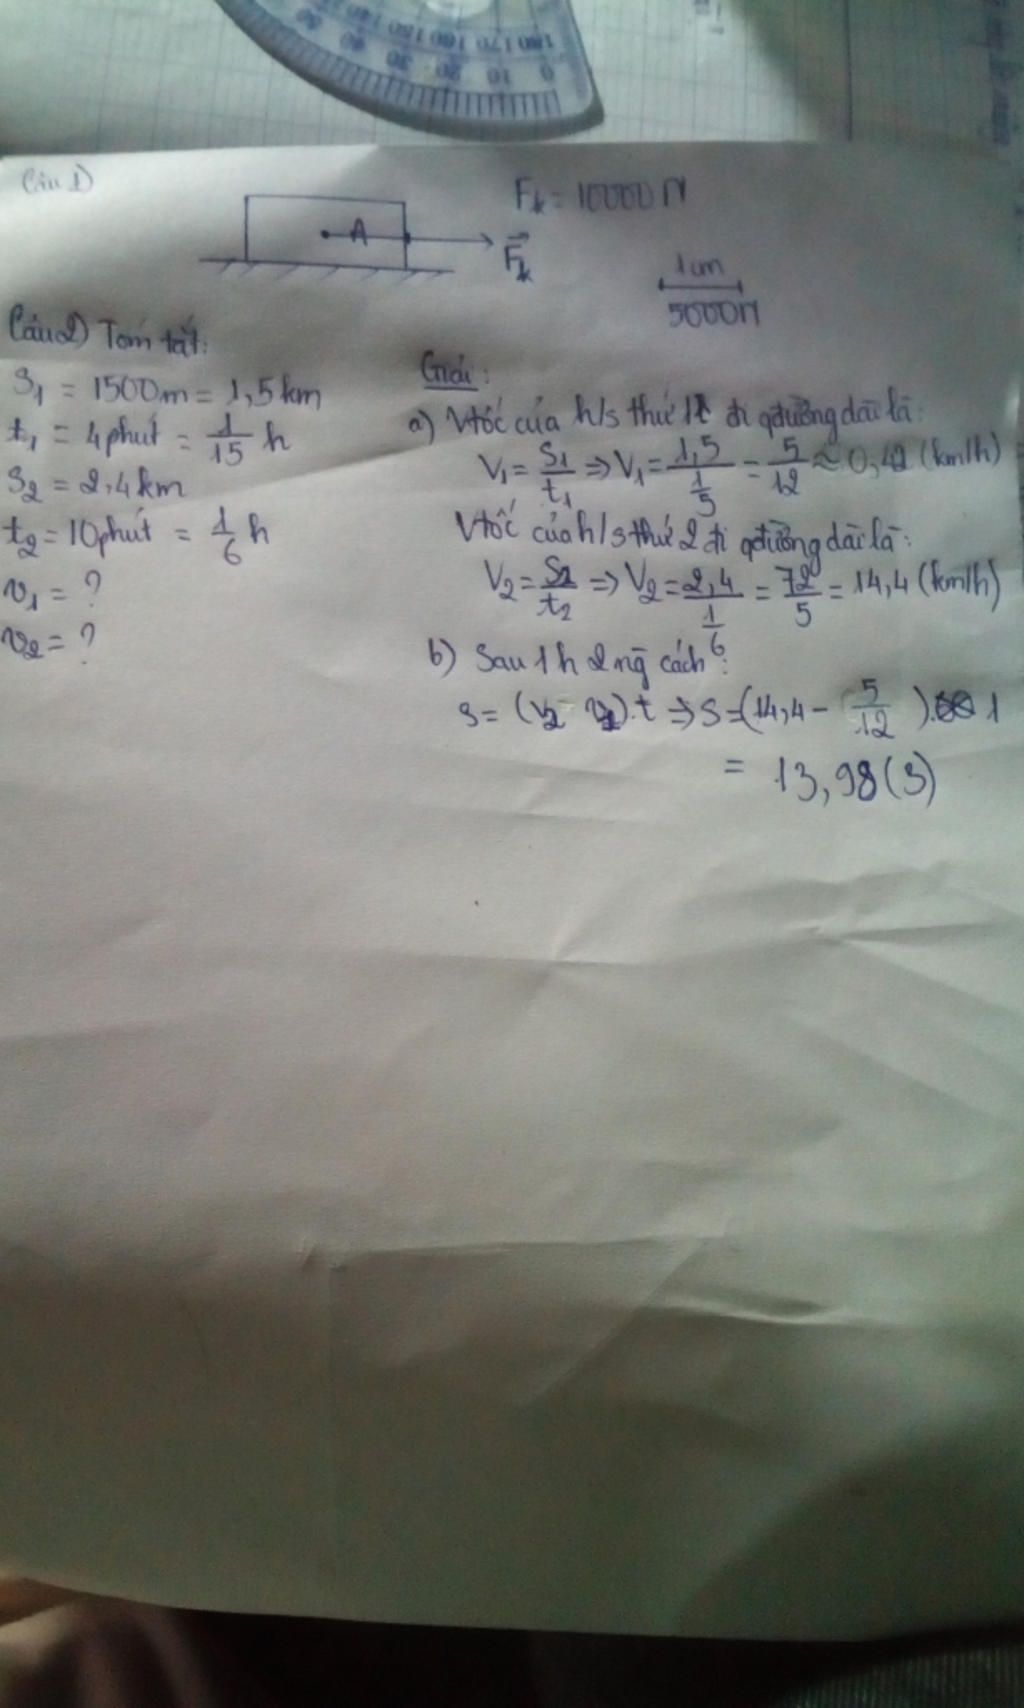 Câu 1)
F_k = 10000N
A
F_k
1cm
5000N
Câu 2) Tóm tắt:
s₁ = 1500m = 1,5km
t₁ = 4phút = 1/15 h
s₂ = 2,4km
t₂ = 10phút = 1/6 h
v₁ = ?
v₂ = ?
Giải:
a) Vtốc của h/s thứ 1 đi qđường dài là:
V₁ = S₁/t₁ => V₁ = 1,5/(1/5) = 5/12 ≈ 0,42 (km/h)
Vtốc của h/s thứ 2 đi qđường dài là:
V₂ = S₂/t₂ => V₂ = 2,4/(1/6) = 72/5 = 14,4 (km/h)
b) Sau 1h 2 ng cách:
s = (v₂ - v₁).t => S = (14,4 - 5/12). 1
= 13,98(3)